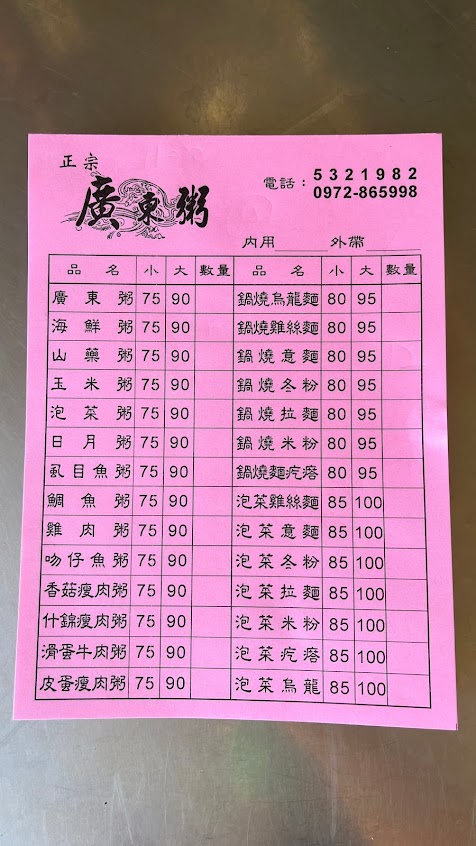 正宗
廣東粥
電話：5321982
0972-865998
內用 外帶
品名 小 大 數量 品名 小 大 數量
廣東粥 75 90 鍋燒烏龍麵 80 95
海鮮粥 75 90 鍋燒雞絲麵 80 95
山藥粥 75 90 鍋燒意麵 80 95
玉米粥 75 90 鍋燒冬粉 80 95
泡菜粥 75 90 鍋燒拉麵 80 95
日月粥 75 90 鍋燒米粉 80 95
虱目魚粥 75 90 鍋燒麵疙瘩 80 95
鯛魚粥 75 90 泡菜雞絲麵 85 100
雞肉粥 75 90 泡菜意麵 85 100
吻仔魚粥 75 90 泡菜冬粉 85 100
香菇瘦肉粥 75 90 泡菜拉麵 85 100
什錦瘦肉粥 75 90 泡菜米粉 85 100
滑蛋牛肉粥 75 90 泡菜疙瘩 85 100
皮蛋瘦肉粥 75 90 泡菜烏龍 85 100